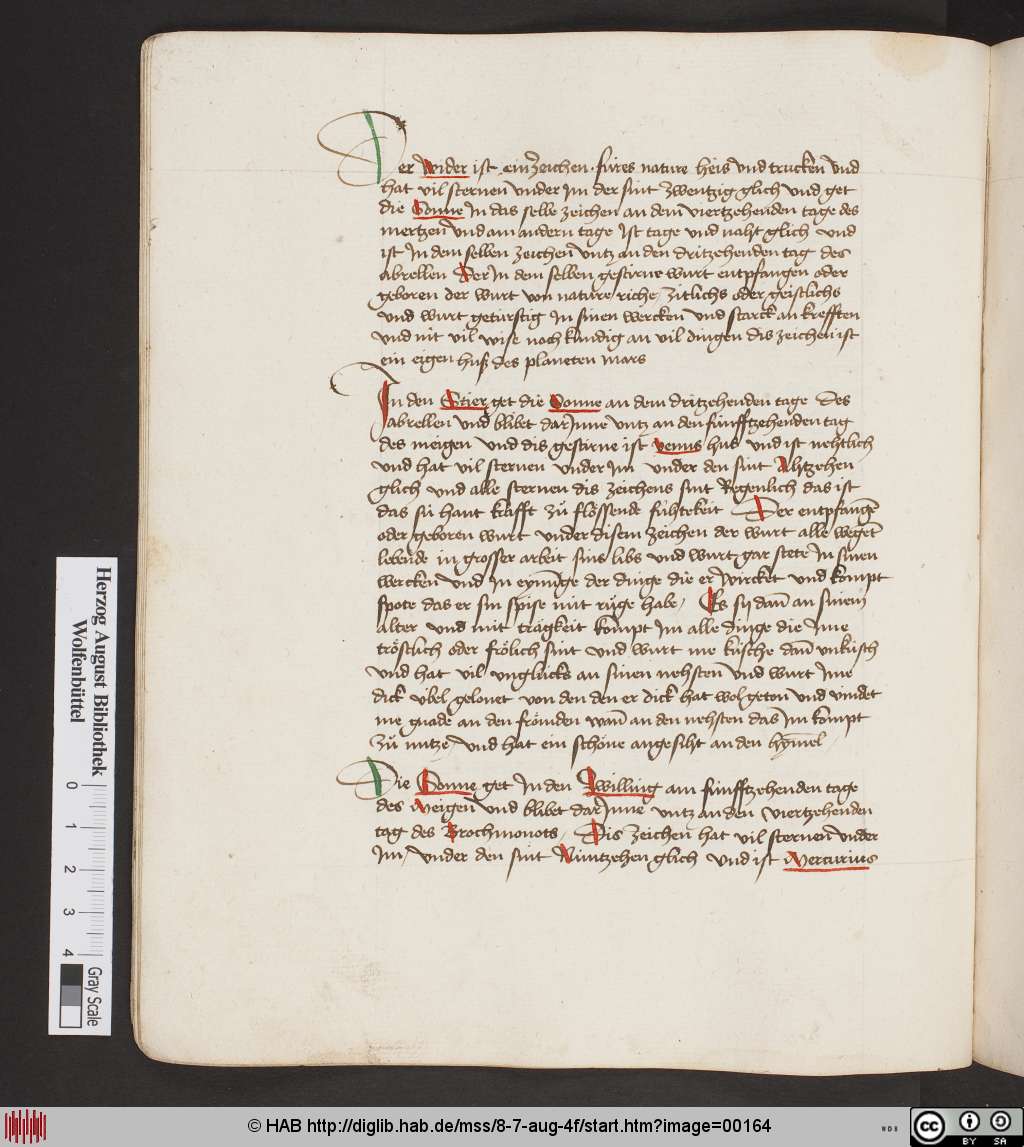 Der wider ist ein zeichen fúres nature heis vnd trucken vnd
hat vil sternen vnder Im der sint zwentzig glich vnd get
die Sonne In das selbe zeichen an dem viertzehenden tage des
mertzen vnd am andern tage Ist tage vnd naht glich vnd
ist In dem selben zeichen vntz an den dritzehenden tag des
abrellen Der In dem selben gestirne wurt entpfangen oder
geboren der wurt von nature riche, zitlichs oder geistlichs
vnd wurt getúrstig In sinen wercken vnd starck an krefften
vnd nit vil wise noch kúndig an vil dingen dis zeichen ist
ein eigen huß des planeten mars
In den Stier get die Sonne an dem dritzehenden tage des
abrellen vnd blibet dar Inne vntz an den fúnfftzehenden tag
des meigen vnd dis gestirne ist venus hus vnd ist nehtlich
vnd hat vil sternen vnder Im vnder den sint Ahtzehen
glich vnd alle sternen dis zeichens sint Regenlich das ist
das sú hant krafft zů flössende fúhtekeit Der entpfangē
oder geboren wurt vnder disem zeichen der wurt alle wegent
lebende in grosser arbeit sins libs vnd wurt gar stete In sinen
wercken vnd In eynunge der dinge die er wircket vnd kompt
spote das er sin spise mit růge habe, Es sy dañ an sinem
alter vnd mit trägkeit kompt Im alle dinge die Ime
tröstlich oder frölich sint vnd wurt me kúsche dañ vnkúsch
vnd hat vil vnglúcks an sinen nehsten vnd wurt Ime
dick vbel gelonet von den den er dick hat wol geton vnd vindet
me gnade an den frömden wañ an den nehsten das Im kompt
zů nutze, vnd hat ein schöne angesiht an den hymel
Die Sonne get In den Zwilling am fúnfftzehenden tage
des Meigen vnd blibet dar Inne vntz an den viertzehenden
tag des Brochmonots, Dis zeichen hat vil sternen vnder
Im, vnder den sint Núntzehen glich vnd ist Mercurius
Herzog August Bibliothek
Wolfenbüttel
0 1 2 3 4
Gray Scale
© HAB http://diglib.hab.de/mss/8-7-aug-4f/start.htm?image=00164
WDB
cc BY SA